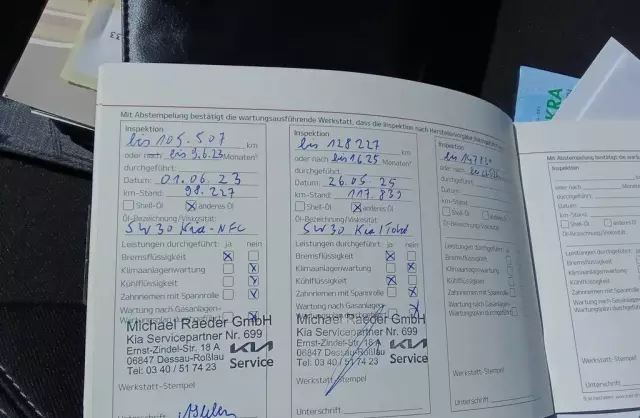 Mit Abstempelung bestätigt die wartungsausführende Werkstatt, dass die Inspektion nach Herstellervorgabe
Inspektion
bis 105.507 km
oder nach bis 9.6.23 Monaten
durchgeführt:
Datum: 01.06.23
km-Stand: 98.227
Shell-Öl anderes Öl
Öl-Bezeichnung/Viskosität:
5W30 Kia-NFC
Leistungen durchgeführt: ja nein
Bremsflüssigkeit
Klimaanlagenwartung
Kühlflüssigkeit
Zahnriemen mit Spannrolle
Wartung nach Gasanlagen-
Michael Raeder GmbH
Kia Servicepartner Nr. 699
Ernst-Zindel-Str. 18 A
06847 Dessau-Roßlau
Tel: 03 40 / 51 74 23
KIA
Service
Werkstatt-Stempel
Inspektion
bis 128227 km
oder nach bis 1.6.25 Monaten
durchgeführt:
Datum: 26.05.25
km-Stand: 117.893
Shell-Öl anderes Öl
Öl-Bezeichnung/Viskosität:
5W30 Kia/Total
Leistungen durchgeführt: ja nein
Bremsflüssigkeit
Klimaanlagenwartung
Kühlflüssigkeit
Zahnriemen mit Spannrolle
Wartung nach Gasanlagen-
Michael Raeder GmbH
Kia Servicepartner Nr. 699
Ernst-Zindel-Str. 18 A
06847 Dessau-Roßlau
Tel: 03 40 / 51 74 23
KIA
Service
Werkstatt-Stempel
Unterschrift
Inspektion
oder nach
durchgeführt:
Datum:
km-Stand:
Shell-Öl anderes Öl
Öl-Bezeichnung/Viskosität:
Leistungen durchgeführt:
Bremsflüssigkeit
Klimaanlagenwartung
Kühlflüssigkeit
Zahnriemen mit Spannrolle
Wartung nach Gasanlagen-
Werkstatt-Stempel
Unterschrift
Mit Abstempelung bestätigt die
Inspektion
oder nach
durchgeführt:
Datum:
km-Stand:
Shell-Öl anderes Öl
Öl-Bezeichnung/Viskosität:
Leistungen durchgeführt:
Bremsflüssigkeit
Klimaanlagenwartung
Kühlflüssigkeit
Zahnriemen mit Spannrolle
Wartung nach Gasanlagen-
Werkstatt-Stempel
Unterschrift
KRA